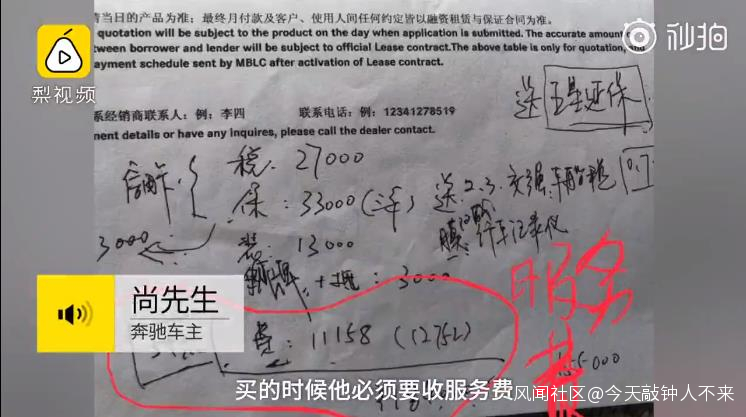 请当日的产品为准；最终月付款及客户、使用人间任何约定皆以融资租赁与保证合同为准。
quotation will be subject to the product on the day when application is submitted. The accurate amount o
tween borrower and lender will be subject to official Lease contract.The above table is only for quotation, and
ayment schedule sent by MBLC after activation of Lease contract.
秒拍
梨视频
系经销商联系人：例：李四 联系电话：例：12341278519
ment details or have any inquires, please call the dealer contact.
送 五星延保
信用卡
税：27000
保：33000(三年) 送 2.3. 交强 车船税
3000
装：13000
膜 行车记录仪
上牌 + 抵：3000
服务费
尚先生
奔驰车主
费：11158 (12752)
买的时候他必须要收服务费
风闻社区@今天敲钟人不来